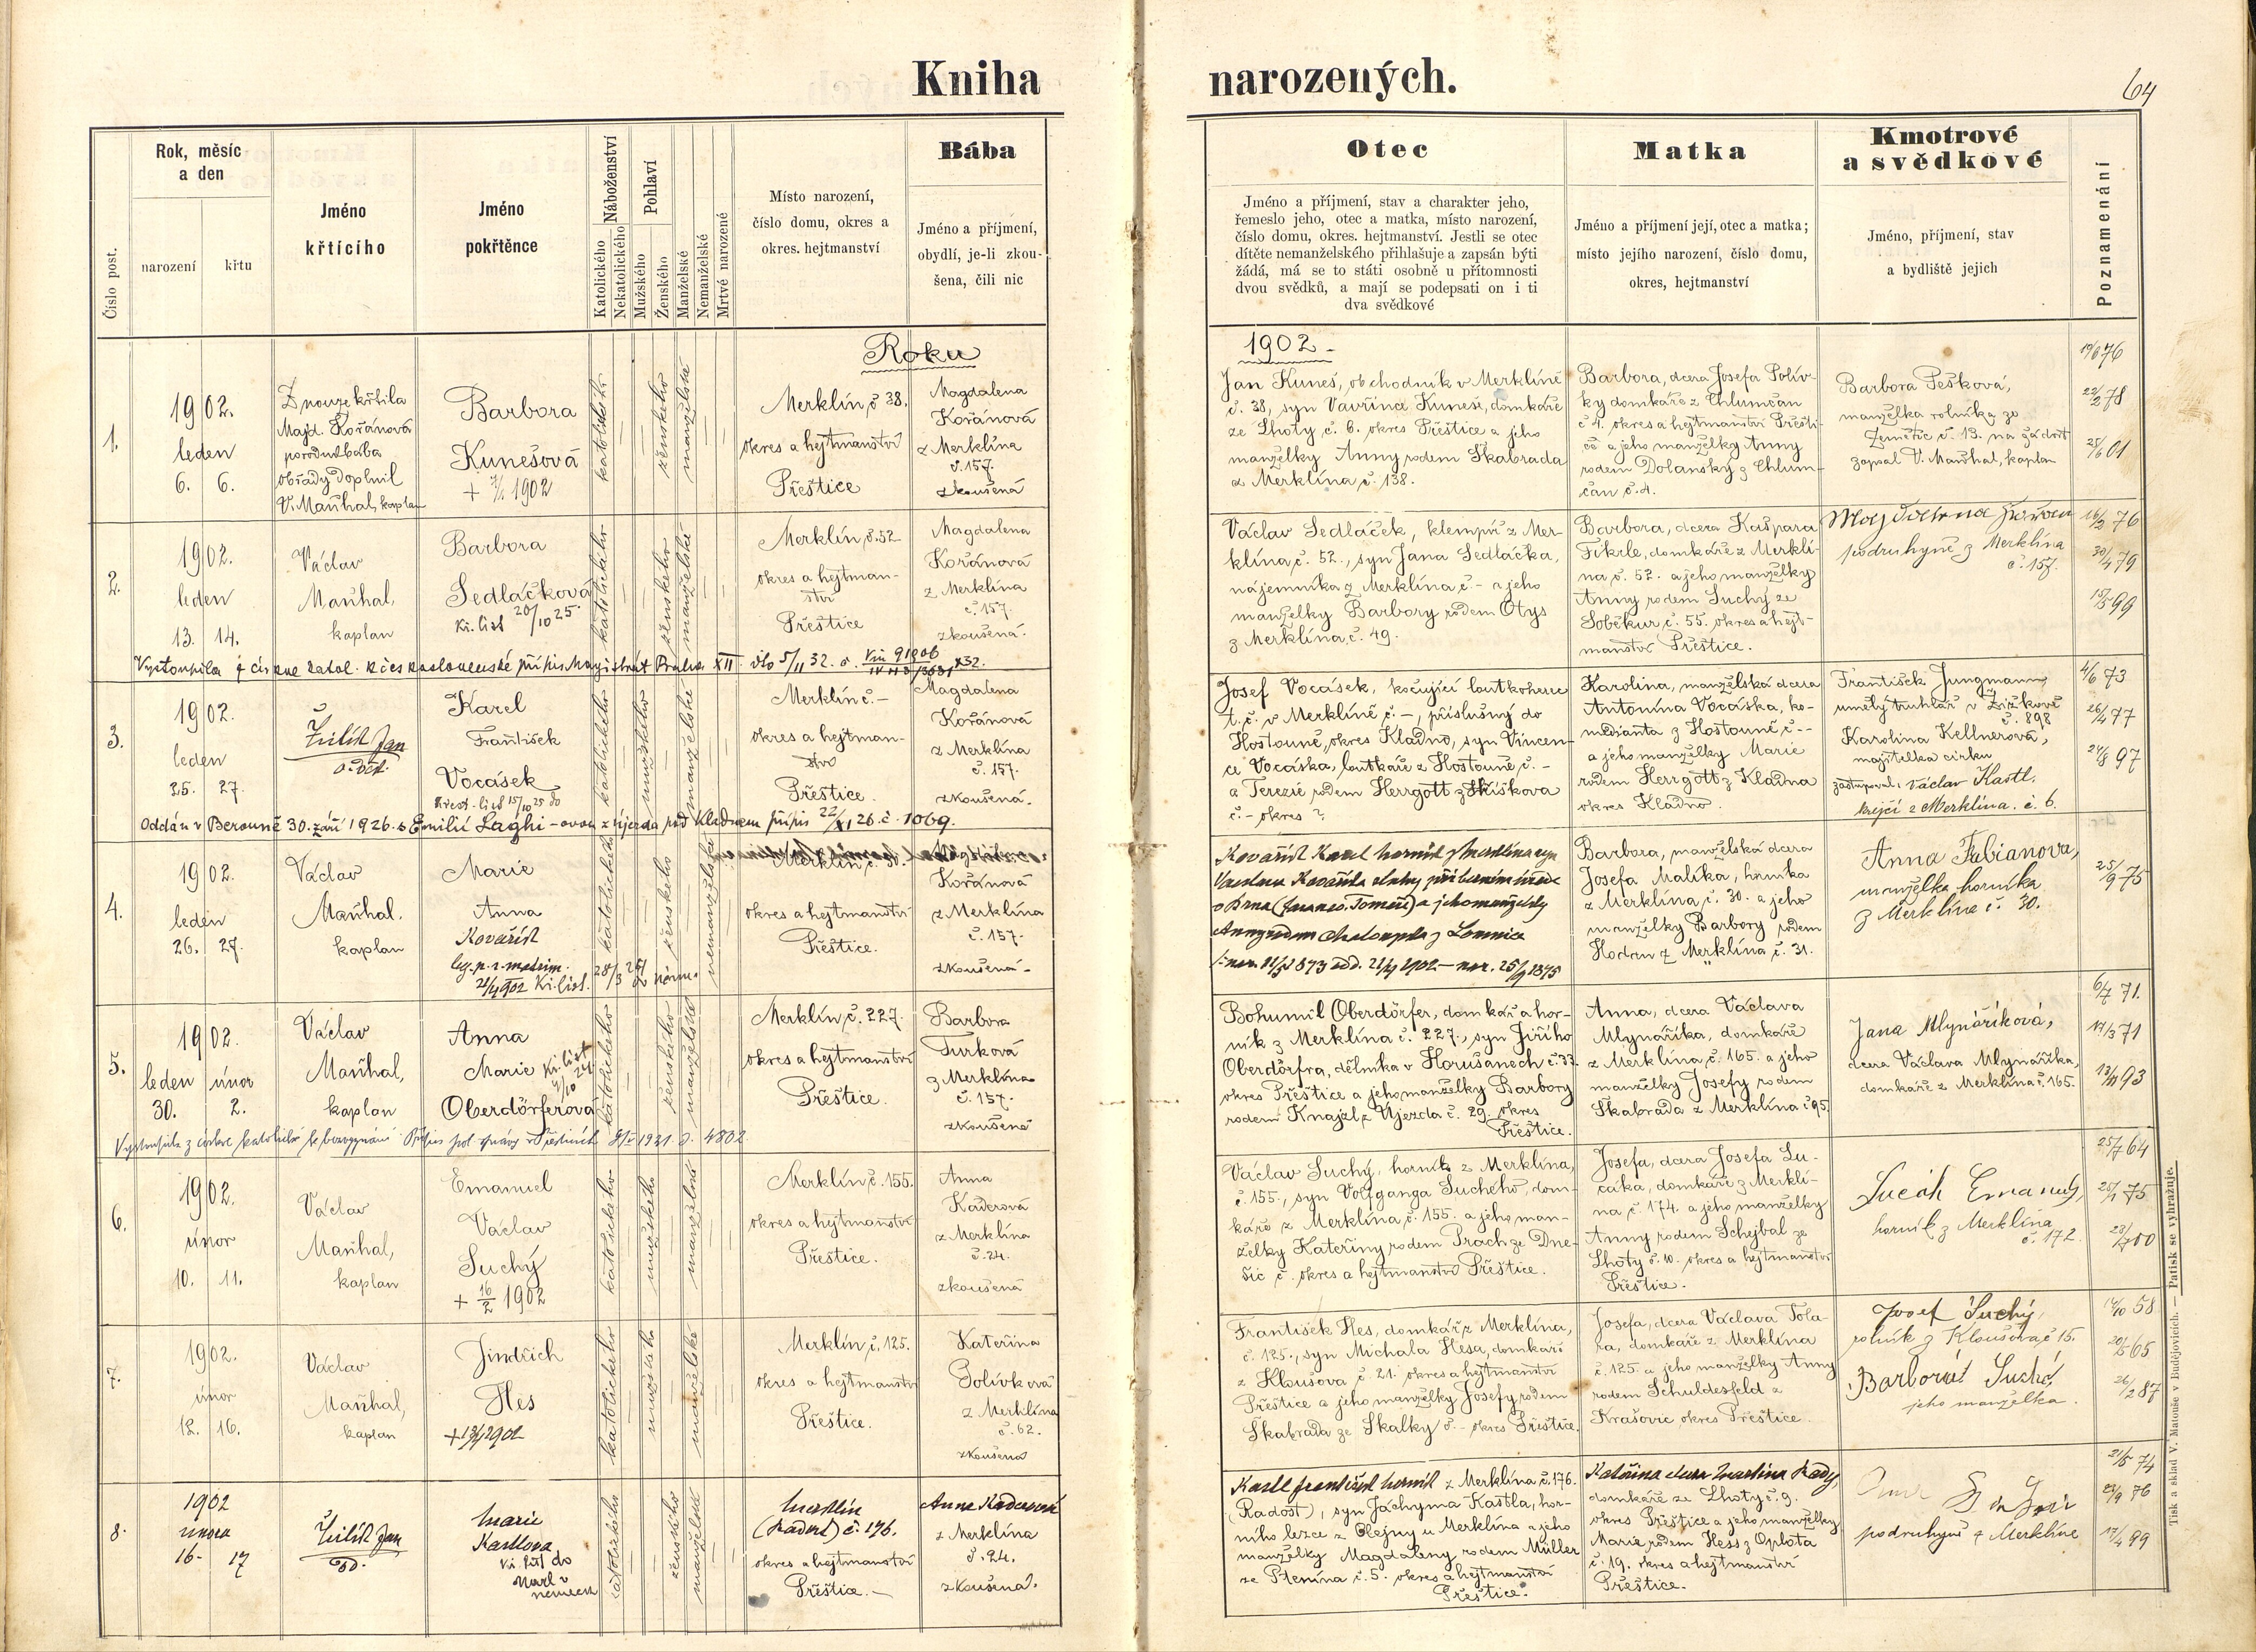 Kniha narozených.
64
Číslo post.
Rok, měsíc
a den
narození
křtu
Jméno
křtícího
Jméno
pokřtěnce
Náboženství
Katolického
Nekatolického
Pohlaví
Mužského
Ženského
Manželské
Nemanželské
Mrtvé narozené
Místo narození,
číslo domu, okres a
okres. hejtmanství
Bába
Jméno a příjmení,
obydlí, je-li zkou-
šena, čili nic
Otec
Jméno a příjmení, stav a charakter jeho,
řemeslo jeho, otec a matka, místo narození,
číslo domu, okres. hejtmanství. Jestli se otec
dítěte nemanželského přihlašuje a zapsán býti
žádá, má se to státi osobně u přítomnosti
dvou svědků, a mají se podepsati on i ti
dva svědkové
Matka
Jméno a příjmení její, otec a matka;
místo jejího narození, číslo domu,
okres, hejtmanství
Kmotrové
a svědkové
Jméno, příjmení, stav
a bydliště jejich
Poznamenání
Roku 1902
1.
1902.
leden
6. 6.
Z nouze křtila
Majd. Kořánová
porodní bába
obřady doplnil
V. Maňhal, kaplan
Barbora
Kunešová
+ 7/1 1902
katolické
ženského
manželské
Merklín, č 38.
okres a hejtmanství
Přeštice
Magdalena
Kořánová
z Merklína
č. 157.
zkoušená
Jan Kuneš, obchodník v Merklíně
č. 38, syn Vavřince Kuneše, domkáře
ze Lhoty, č. 6. okres Přeštice a jeho
manželky Anny rodem Škabrada
z Merklína, č. 138.
Barbora, dcera Josefa Polív-
ky domkáře z Chlumčan
č 4. okres a hejtmanství Přešti-
ce a jeho manželky Anny
rodem Dolanský z Chlum-
čan č. 4.
Barbora Pešková,
manželka rolníka ze
Zemětic č. 13. na žádost
zapsal V. Maňhal, kaplan
19/6 76
22/2 78
25/6 01
2.
1902.
leden
13. 14.
Václav
Maňhal,
kaplan
Barbora
Sedláčková
Kř. list 20/10 25.
katolického
ženského
manželské
Merklín, č. 52
okres a hejtman-
ství
Přeštice
Magdalena
Kořánová
z Merklína
č. 157.
zkoušená.
Václav Sedláček, klempíř z Mer-
klína, č. 52., syn Jana Sedláčka,
nájemníka z Merklína, č. - a jeho
manželky Barbory rodem Otys
z Merklína, č. 49.
Barbora, dcera Kašpara
Fikrle, domkáře z Merklí-
na, č. 52. a jeho manželky
Anny rodem Suchý ze
Soběkur, č. 55. okres a hejt-
manství Přeštice.
podruhyně z Merklína
č. 157.
16/2 76
30/4 79
Vystoupila z církve katol. k československé přípis Magistrát Praha XII.
3.
1902.
leden
25. 27.
Žilík Jan
Karel
František
Vocásek
Křest. list 15/10 25
katolického
mužského
manželské
Merklín č. -
okres a hejtman-
ství
Přeštice.
Magdalena
Kořánová
z Merklína
č. 157.
zkoušená.
Josef Vocásek, kočující loutkoherec
t. č. v Merklíně č. -, příslušný do
Hostouně, okres Kladno, syn Vincen-
ce Vocáska, loutkáře z Hostouně, č. -
a Terezie rodem Herrgott
č. - okres ?
Karolina, manželská dcera
Antonína Vocáska, ko-
medianta z Hostouně, č. -
a jeho manželky Marie
rodem Herrgott z Kladna
okres Kladno.
František Jungmann,
umělý truhlář v Žižkově
č. 898
Karolina Kellnerová,
majitelka cirku
zastupoval: Václav Kastl.
krejčí z Merklína. č. 6.
4/6 73
26/4 77
24/8 97
Oddán v Berouně 30. září 1926. s Emilií Laghi-ovou z Újezda pod Kladnem přípis 22/XI 26. č. 1069.
4.
1902.
leden
26. 27.
Václav
Maňhal.
kaplan
Marie
Anna
Kovařík
leg. p. s. matrim.
21/4 902 Kř. list.
katolického
ženského
nemanželské
Merklín, č. 30.
okres a hejtmanství
Přeštice.
Kořánová
z Merklína
č. 157.
zkoušená.
Kovařík Karel horník z Merklína syn
Barbora, manželská dcera
Josefa Malíka, horníka
z Merklína, č. 30. a jeho
manželky Barbory rodem
Hodan z Merklína, č. 31.
Anna Fabianova,
manželka horníka
z Merklína č. 30.
25/9 75
5.
1902.
leden únor
30. 2.
Václav
Maňhal,
kaplan
Anna
Marie
Oberdörferová
katolického
ženského
manželské
Merklín, č. 227.
okres a hejtmanství
Přeštice.
Barbora
Turková
z Merklína
č. 157.
zkoušená
Bohumil Oberdörfer, domkář a hor-
ník z Merklína č. 227., syn Jiřího
Oberdörfra, dělníka v Horušanech č. 33
okres Přeštice a jeho manželky Barbory
rodem Knajzl z Újezda č. 29. okres
Přeštice.
Anna, dcera Václava
Mlynáříka, domkáře
z Merklína, č. 165. a jeho
manželky Josefy rodem
Škabrada z Merklína č 95.
Jana Mlynáříková,
dcera Václava Mlynáříka,
domkáře z Merklína č. 165.
6/7 71.
17/3 71
Vystoupila z církve katolické 1921 č. 4802
6.
1902.
únor
10. 11.
Václav
Maňhal,
kaplan
Emanuel
Václav
Suchý
+ 16/2 1902
katolického
mužského
manželské
Merklín, č. 155.
okres a hejtmanství
Přeštice.
Anna
Kaderová
z Merklína
č. 24.
zkoušená
Václav Suchý, horník z Merklína,
č. 155., syn Volfganga Suchého, dom-
káře z Merklína, č. 155. a jeho man-
želky Kateřiny rodem Prach ze Dne-
šic č. okres a hejtmanství Přeštice.
Josefa, dcera Josefa Lu-
cáka, domkáře z Merklí-
na č. 174. a jeho manželky
Anny rodem Schejbal ze
Lhoty č. 10. okres a hejtmanství
Přeštice.
horník z Merklína
č. 172.
25/7 64
25/1 75
7.
1902.
únor
12. 16.
Václav
Maňhal,
kaplan
Jindřich
Hes
katolického
mužského
manželské
Merklín, č. 125.
okres a hejtmanství
Přeštice.
Kateřina
Polívková
z Merklína
č. 62.
zkoušená
František Hes, domkář z Merklína,
č. 125., syn Michala Hesa, domkáře
z Kloušova č. 21. okres a hejtmanství
Přeštice a jeho manželky Josefy rodem
Škabrada ze Skalky č. - okres Přeštice.
Josefa, dcera Václava Pola-
ka, domkáře z Merklína
č. 125. a jeho manželky Anny
rodem Schuldesfeld z
Krašovic okres Přeštice.
Josef Suchý,
rolník z Kloušova, č 15.
Barbora Suchá
jeho manželka.
20/5 65
26/2 87
8.
1902
února
16. 17
Žilík Jan
Marie
Kastlova
Kř. list do
Marl v
němecch
katolického
ženského
manželské
Merklín
(Radost) č. 176.
okres a hejtmanství
Přeštice.
Anna Kaderová
z Merklína
č. 24.
zkoušená.
Kastl František horník z Merklína č. 176.
(Radost), syn Jáchyma Kastla, hor-
ního lezce z Olejny u Merklína a jeho
manželky Magdaleny rodem Müller
ze Ptenína č. 5. okres a hejtmanství
Přeštice.
Kateřina dcera Martina Rady,
domkáře ze Lhoty č. 9.
okres Přeštice a jeho manželky
Marie rodem Hess z Oplota
č. 19. okres a hejtmanství
Přeštice.
podruhyně z Merklína
21/5 74
17/4 99
Tisk a sklad V. Matouše v Budějovicích. — Patisk se vyhražuje.